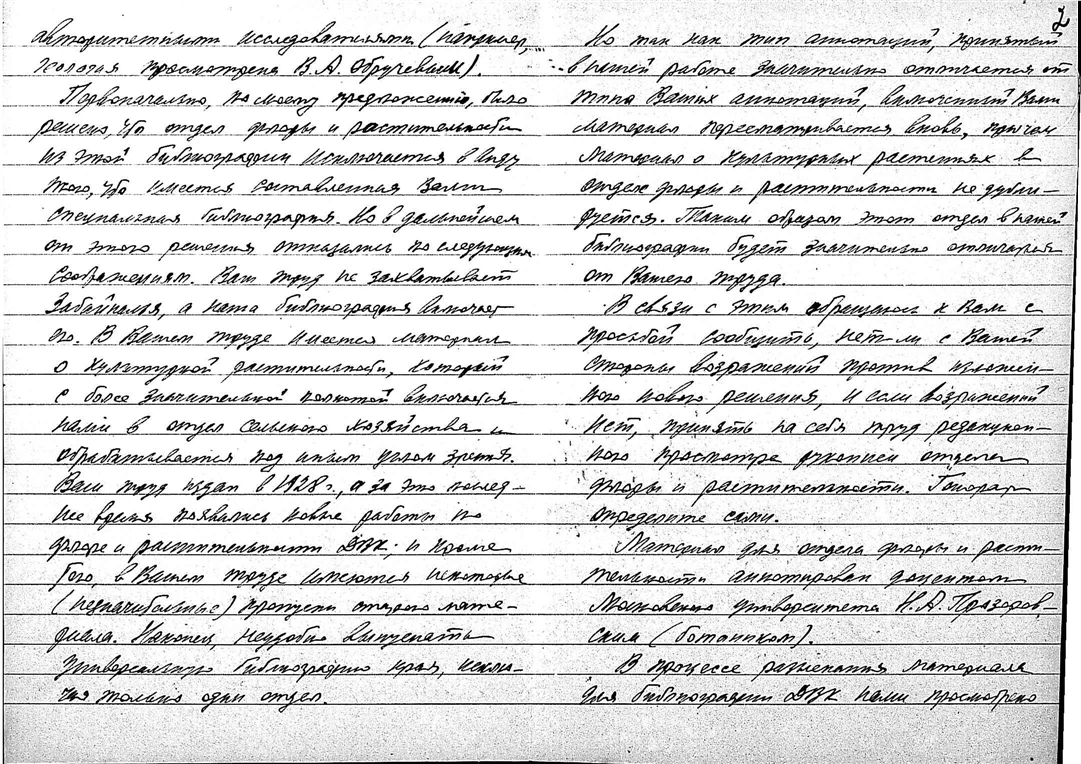 2
авторитетными исследователями (например,
геология просмотрена В.А. Обручевым).
Первоначально, по моему предложению, было
решено, что отдел флоры и растительности
из этой библиографии исключается в виду
того, что имеется составленная Вами
специальная библиография. Но в дальнейшем
от этого решения отказались по следующим
соображениям. Ваш труд не захватывает
Забайкалья, а наша библиография включает
его. В Вашем труде имеется материал
о культурной растительности, который
с более значительной полнотой включается
нами в отдел сельского хозяйства и
обрабатывается под иным углом зрения.
Ваш труд издан в 1928 г., а за это послед-
нее время появились новые работы по
флоре и растительности ДВК и кроме
того, в Вашем труде имеются некоторые
(незначительные) пропуски старого мате-
риала. Наконец, неудобно выпускать
универсальную библиографию края, исклю-
чив только один отдел.
Но так как тип аннотаций, принятый
в нашей работе значительно отличается от
типа Ваших аннотаций, включенный Вами
материал пересматривается вновь, причем
материал о культурных растениях в
отделе флоры и растительности не дубли-
руется. Таким образом этот отдел в нашей
библиографии будет значительно отличаться
от Вашего труда.
В связи с этим обращаюсь к Вам с
просьбой сообщить, нет-ли с Вашей
стороны возражений против изложен-
ного нового решения, и если возражений
нет, принять на себя труд редакцион-
ного просмотра рукописи отдела
флоры и растительности. Гонорар
определите сами.
Материал для отдела флоры и расти-
тельности аннотирован доцентом
Московского университета Н.А. Прозоров-
ским (ботаником).
В процессе разыскания материала
для библиографии ДВК нами просмотрено